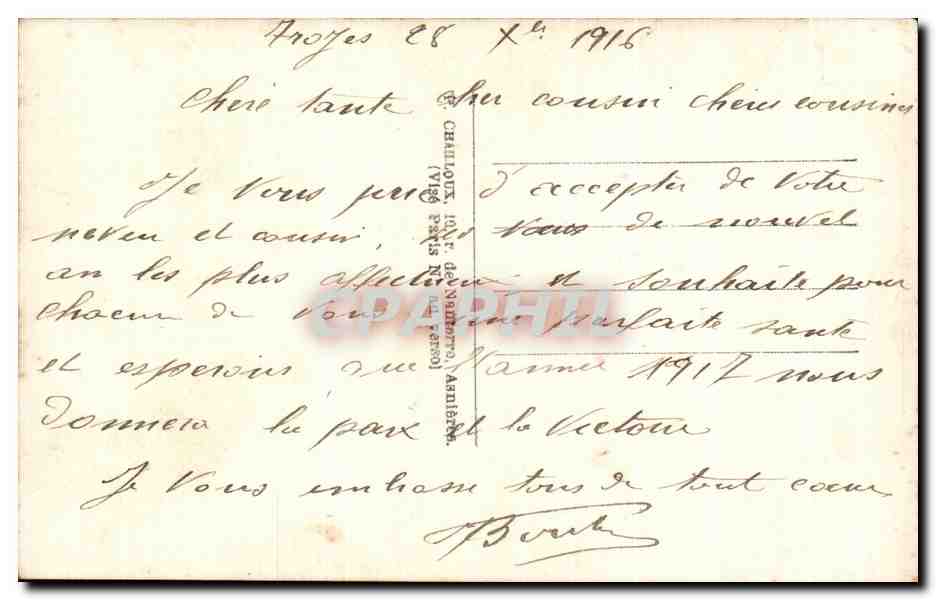 Troyes 28 Xbre 1916
Chère tante cher cousin chères cousines
Je vous prie d'accepter de votre
neveu et cousin, ses vœux de nouvel
an les plus affectueux et souhaite pour
chacun de vous une parfaite sante
et esperons que l'année 1917 nous
donnera la paix et la Victoire
Je vous embrasse tous de tout cœur
CHAILLOUX, r. de Nanterre, Asnières.
(Visé Paris No au verso)
CPAPHIL